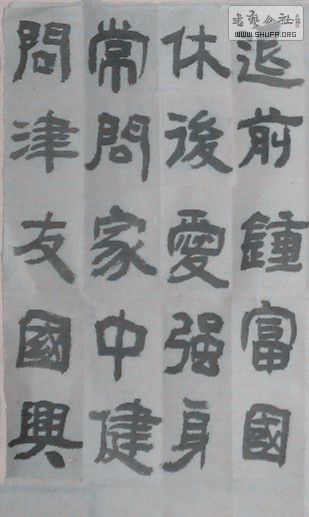 退前鍾富國
休後愛强身
常問家中健
問津友國興
書藝公社
WWW.SHUFA.ORG